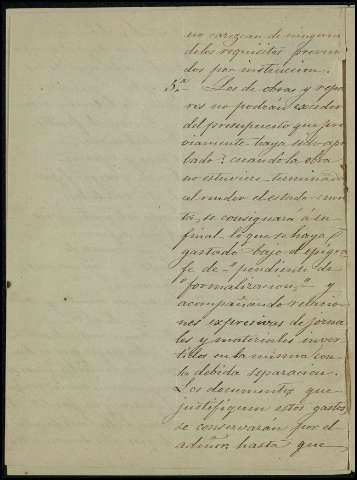 no carezcan de ninguno
de los requisitos preveni
dos por instruccion.
5.a Los de obras y repa
res no podrán exceder
del presupuesto que pre
viamente haya sido apro
bado: cuando la obra
no estuviere terminada
al rendir el estado cuen
ta, se consignará á su
final lo que se haya
gastado bajo el epígra
fe de "pendiente de
"formalizacion," y
acompañando relacio
nes expresivas de jorna
les y materiales inver
tidos en la misma con
la debida separacion.
Los documentos que
justifiquen estos gastos
se conservarán por el
admor, hasta que